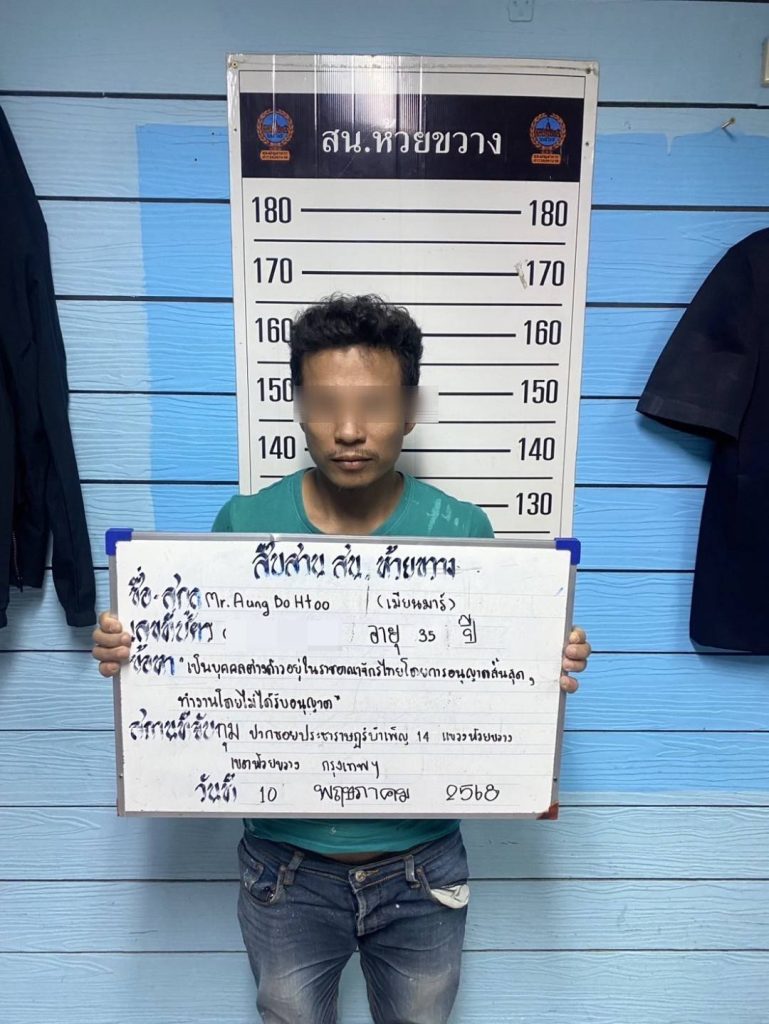 สน.ห้วยขวาง
180 180
170 170
160 160
150 150
140 140
130
สืบสวน สน. ห้วยขวาง
ชื่อ-สกุล Mr. Aung Bo Htoo (เมียนมาร์)
เลขที่บัตร ( อายุ 35 ปี
ข้อหา "เป็นบุคคลต่างด้าวอยู่ในราชอาณาจักรไทยโดยการอนุญาตสิ้นสุด,
ทำงานโดยไม่ได้รับอนุญาต"
สถานที่จับกุม ปากซอยประชาราษฎร์บำเพ็ญ 14 แขวงห้วยขวาง
เขตห้วยขวาง กรุงเทพฯ
วันที่ 10 พฤษภาคม 2568